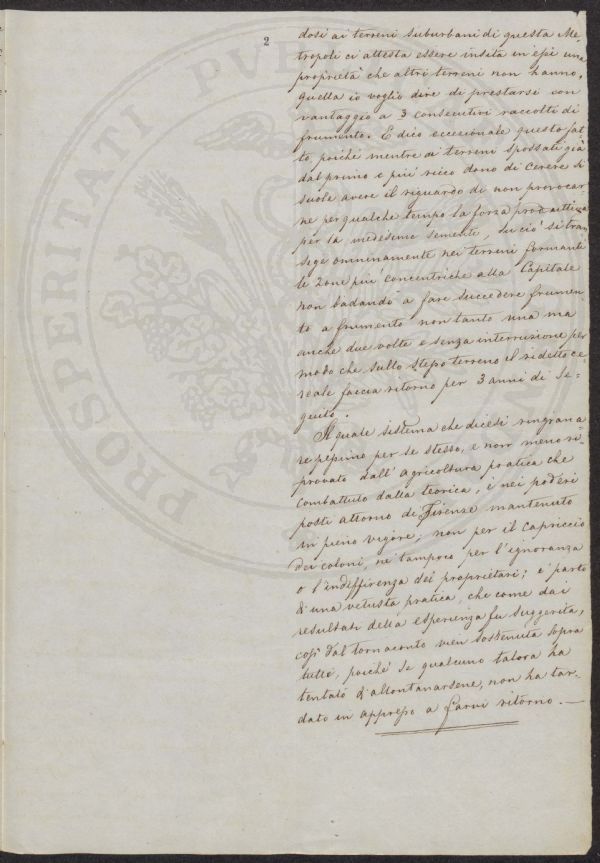 2
dosi ai terreni suburbani di questa Me-
tropoli ci attesta essere insita in essi una
proprietà che altri terreni non hanno,
quella io voglio dire di prestarsi con
vantaggio a 3 consecutivi raccolti di
frumento. E dico eccezionale questo fat
to, poiché mentre ai terreni spossati già
dal primo e più ricco dono di Cerere si
suole avere il riguardo di non provocar
ne per qualche tempo la forza produttiva
per la medesima semente, su ciò si tran
sige onninamente nei terreni formanti
le zone più concentriche alla Capitale
non badando a fare succedere frumen-
to a frumento non tanto una ma
anche due volte e senza interruzione per
modo che sullo stesso terreno il ridetto ce-
reale faccia ritorno per 3 anni di se-
guito.
Il quale sistema che dicesi ringrana
re pessimo per se stesso, e non meno ri-
provato dall'agricoltura pratica che
combattuto dalla teorica, è nei poderi
posti attorno di Firenze mantenuto
in pieno vigore, non per il capriccio
dei coloni, né tampoco per l'ignoranza
o l'indifferenza dei proprietari; è parto
d'una vetusta pratica, che come dai
resultati della esperienza fu suggerita,
così dal tornaconto vien sostenuta sopra
tutto, poiché se qualcuno talora ha
tentato d'allontanarsene, non ha tar-
dato in appresso a farvi ritorno. —
PROSPERITATI PVB